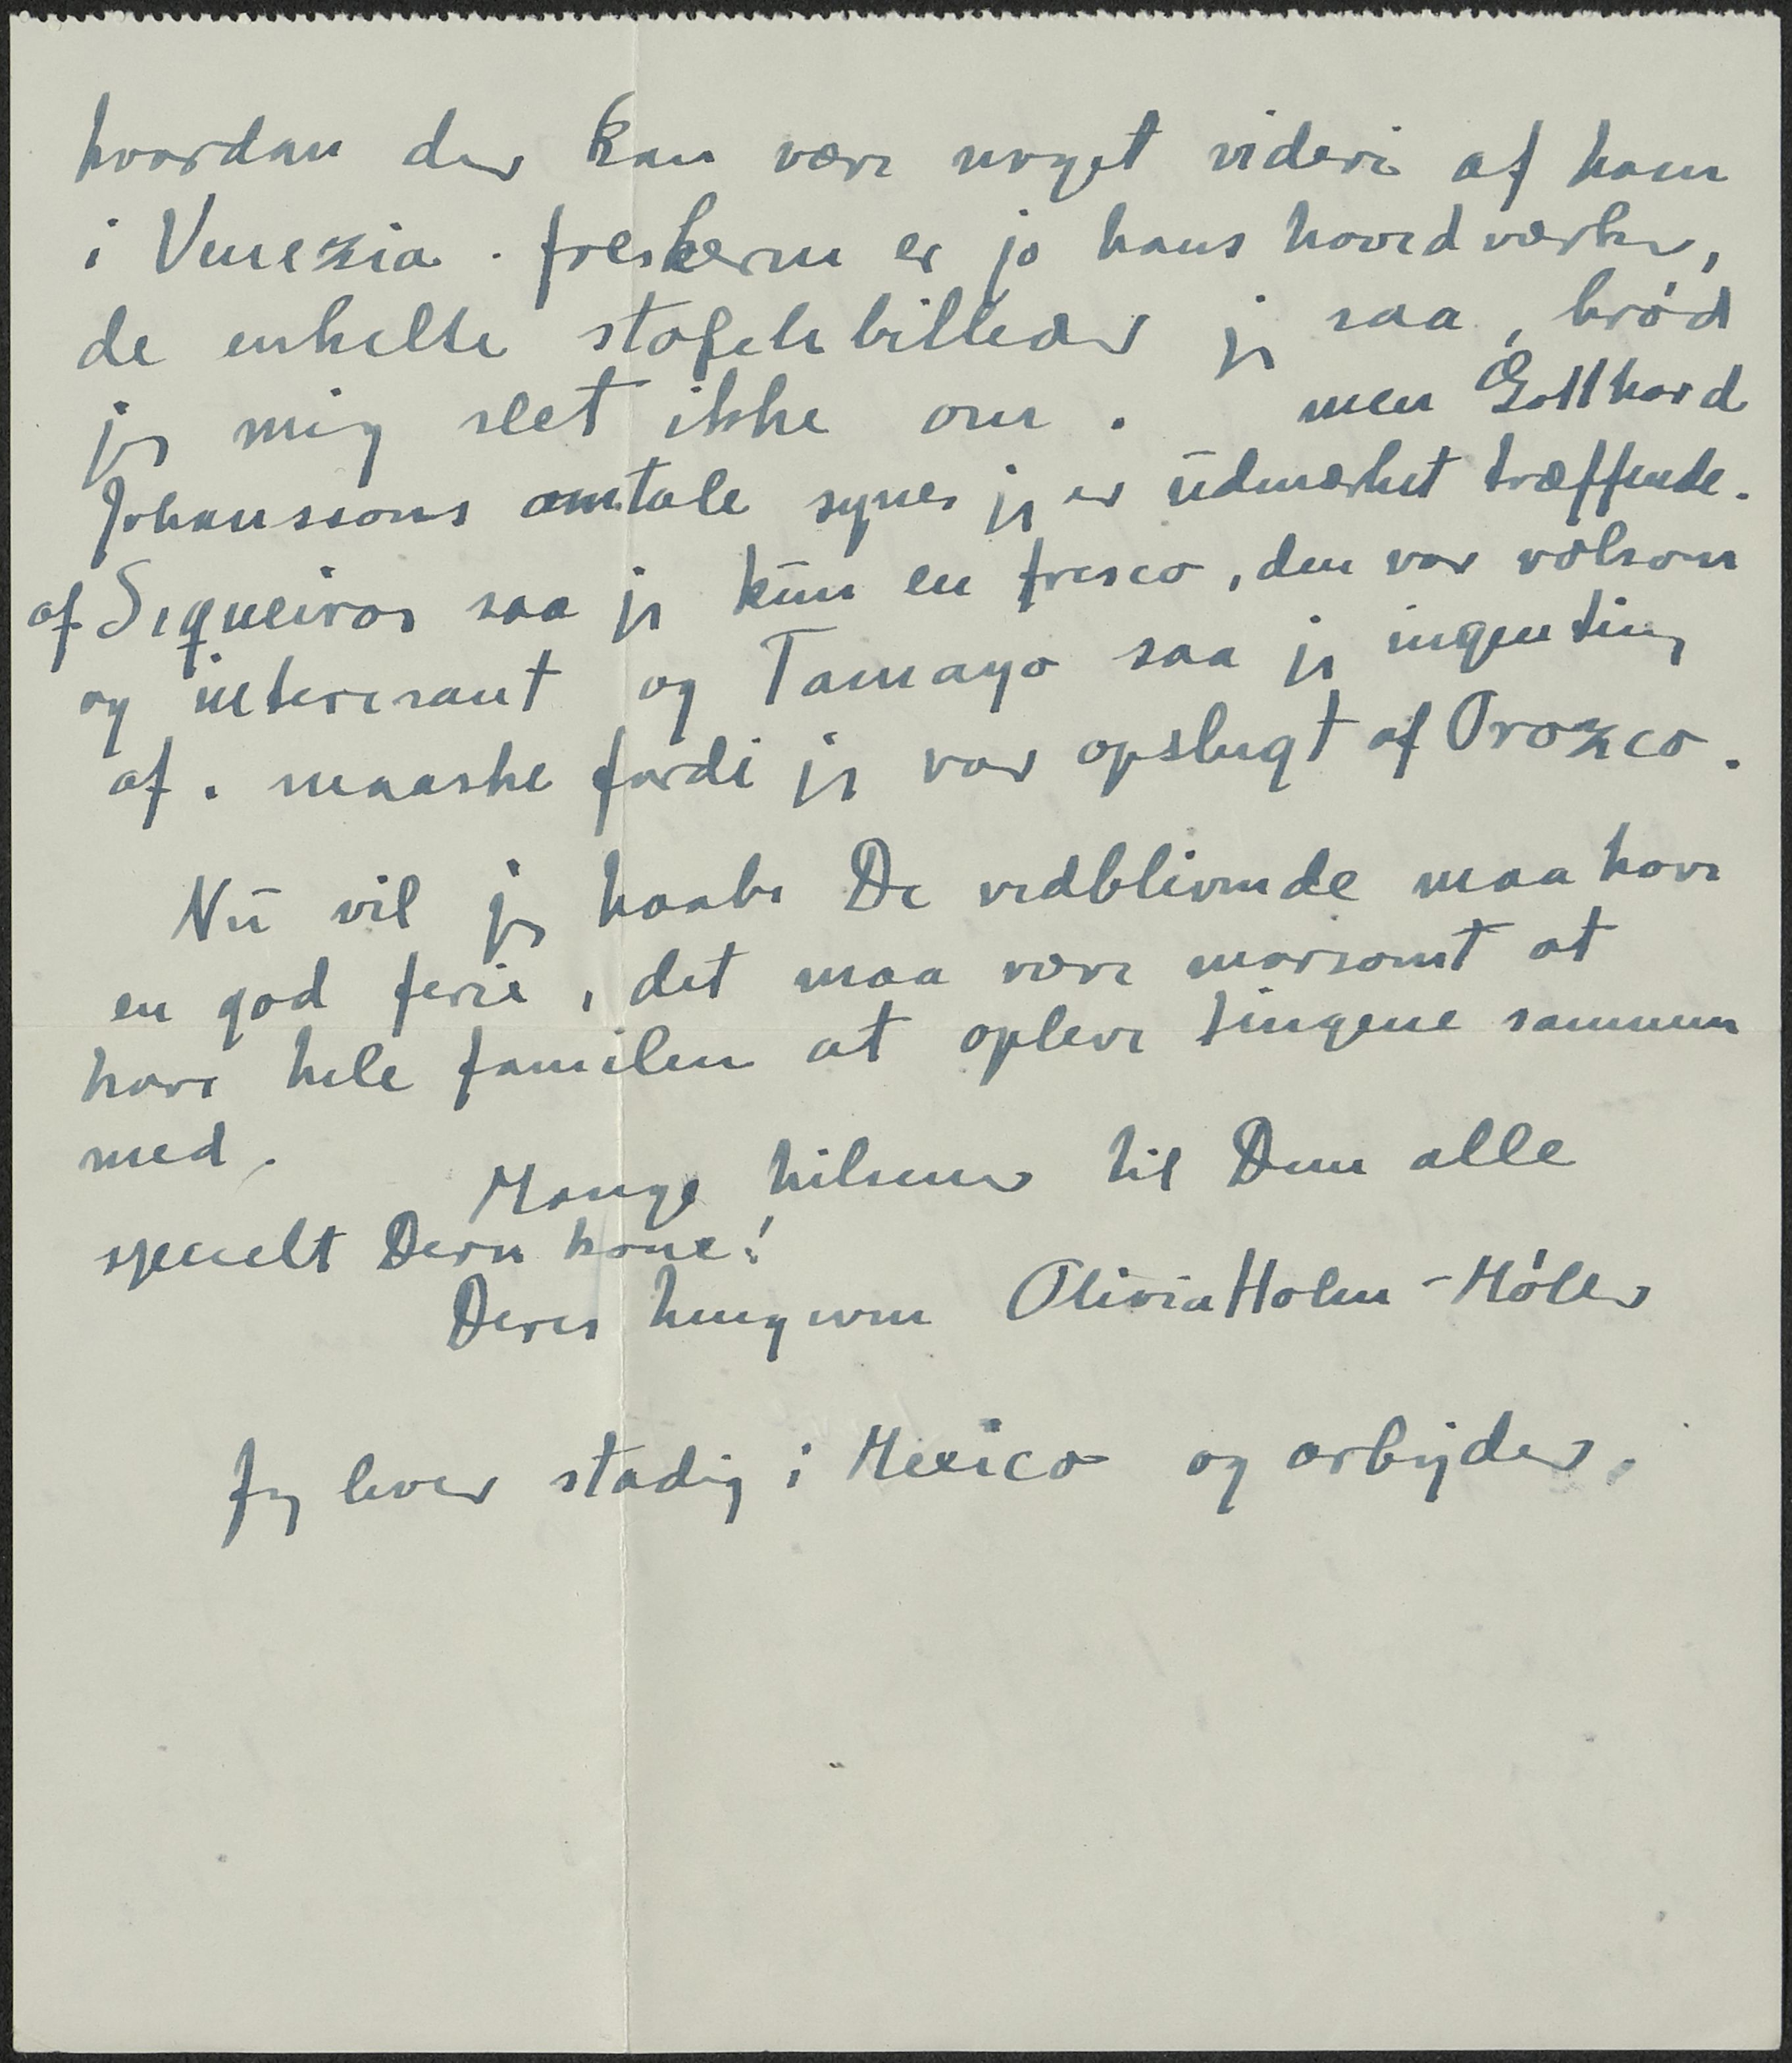 hvordan der kan være noget videre af ham
i Venezia. freskerne er jo hans hovedværker,
de enkelte stafelibilleder jeg saa, brød
jeg mig slet ikke om. men Gotthard
Johanssons omtale synes jeg er udmærket træffende.
af Siqueiros saa jeg kun en fresco, den var voldsom
og interesant og Tamayo saa jeg ingenting
af. maaske fordi jeg var opslugt af Orozco.
Nu vil jeg haabe De vedblivende maa have
en god ferie, det maa være morsomt at
have hele familen at opleve tingene sammen
med.
Mange hilsener til Dem alle
specielt Deres kone!
Deres hengivne Olivia Holm-Møller
Jeg lever stadig i Mexico og arbejder.